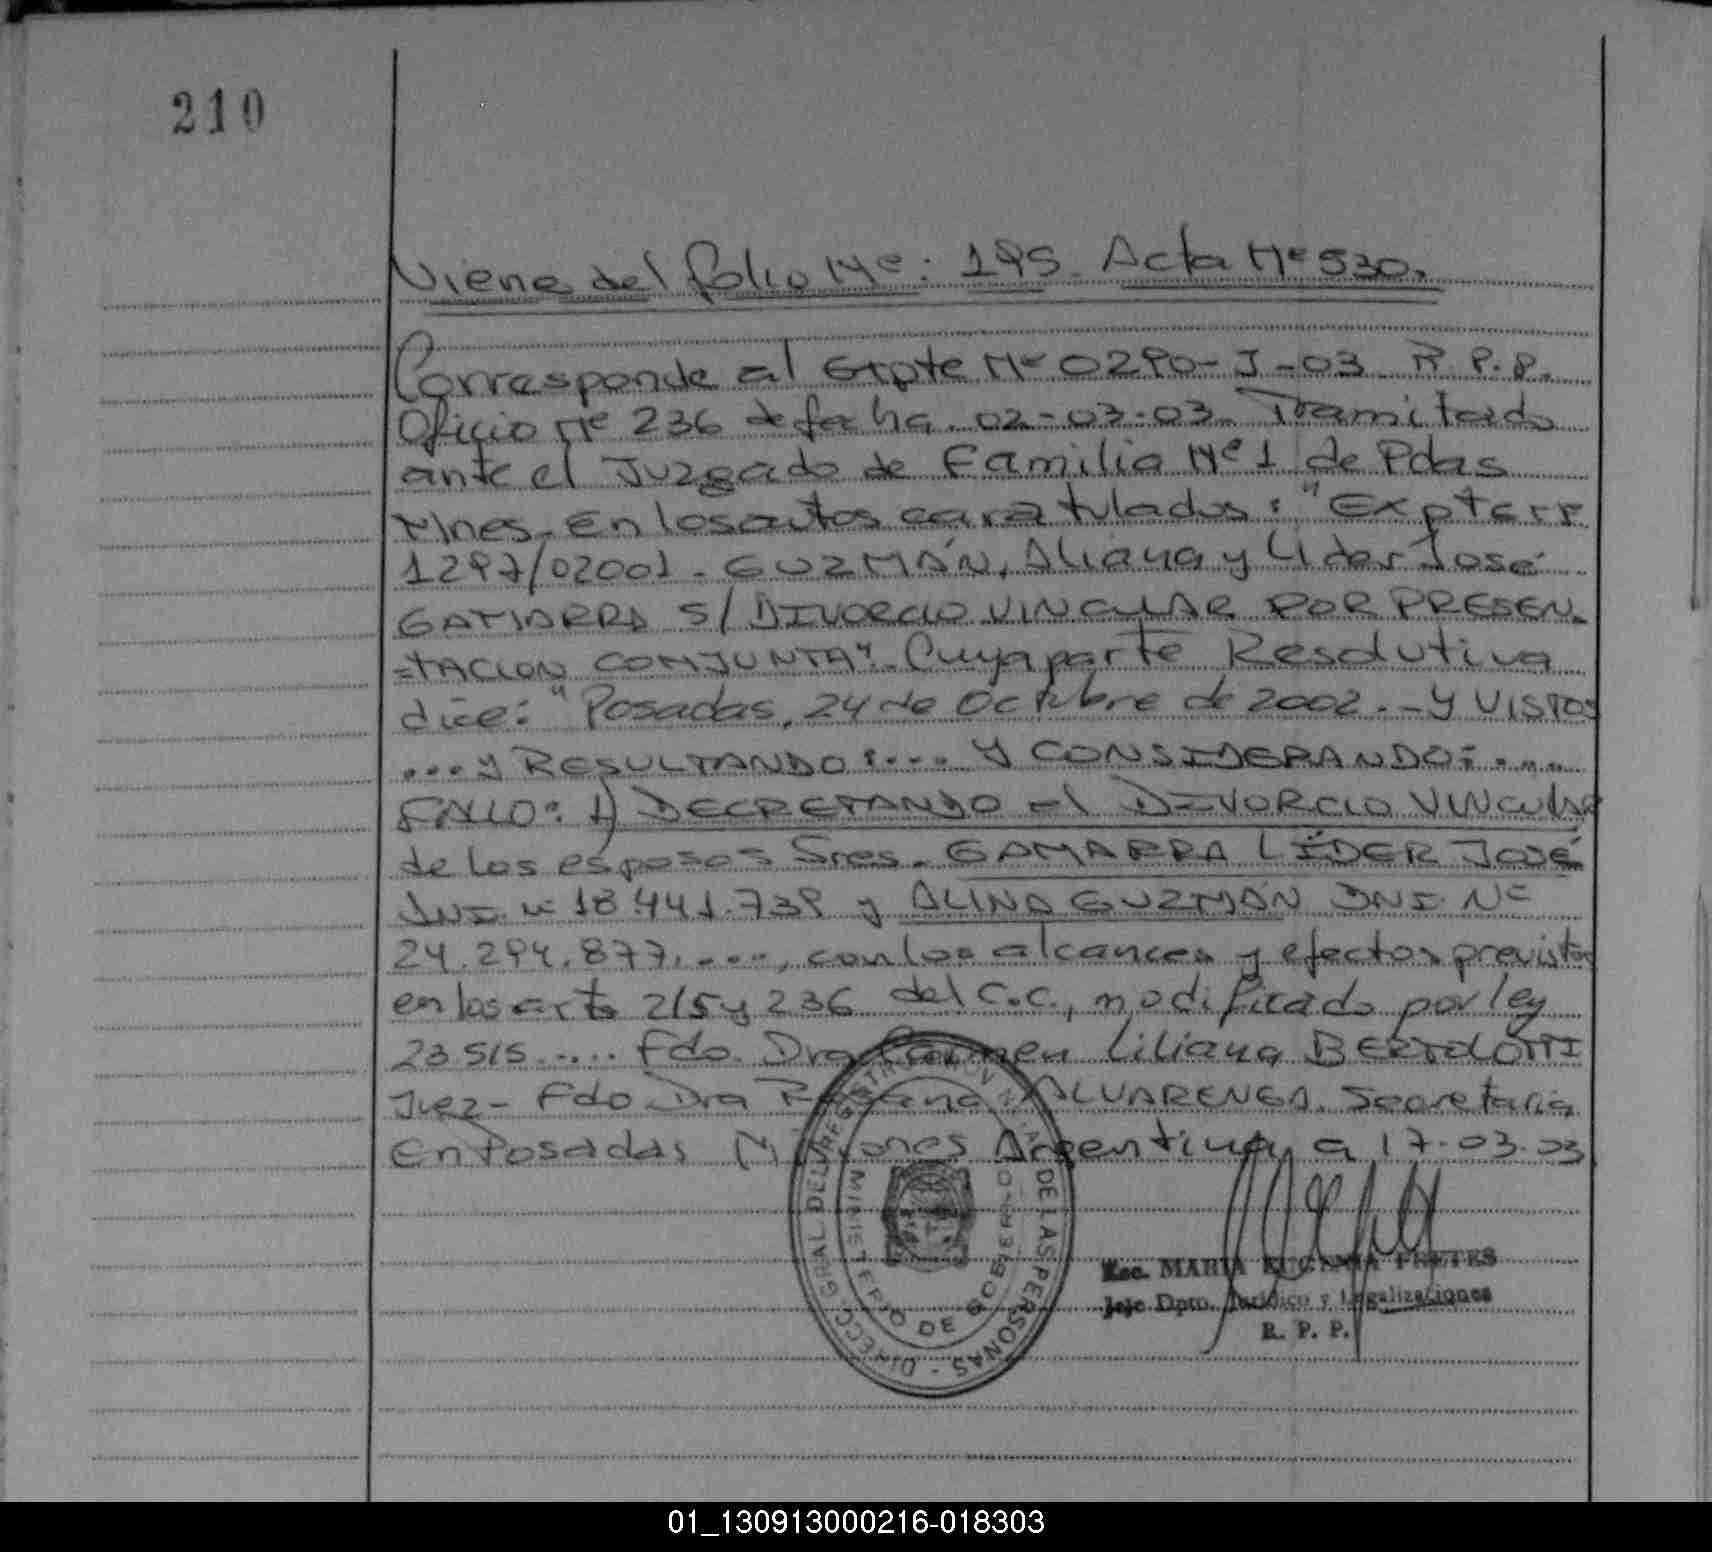 210
Viene del folio Nº: 195. Acta Nº 530.
Corresponde al Expte Nº 0290-J-03 R.P.P.
Oficio Nº 236 de fecha 02-03-03. Tramitado
ante el Juzgado de Familia Nº 1 de Pdas
Mnes. En los autos caratulados: "Expte
1297/02001. GUZMÁN, Aliana y Lider José
GAMARRA S/ DIVORCIO VINCULAR POR PRESEN-
=TACION CONJUNTA". Cuya parte Resolutiva
dice: "Posadas, 24 de Octubre de 2002.-Y VISTOS
...Y RESULTANDO:.... Y CONSIDERANDO:....
FALLO: 1) DECRETANDO el DIVORCIO VINCULAR
de los esposos Sres. GAMARRA LÍDER JOSÉ
DNI Nº 18.441.739 y ALINA GUZMÁN DNI Nº
24.294.877....., con los alcances y efectos previstos
en los arts 215 y 236 del C.C., modificado por ley
23515..... Fdo. Dra Carmen Liliana BERTOLOTTI
Juez- Fdo Dra Rosana ALVARENGA. Secretaria
En Posadas Misiones Argentina, a 17-03-03
DIRECC. GRAL DEL REGISTRO PROV. DE LAS PERSONAS
MINISTERIO DE GOBIERNO
Esc. MARIA EUGENIA FRETES
Jefe Dpto. Jurídico y Legalizaciones
R. P. P.
01_130913000216-018303